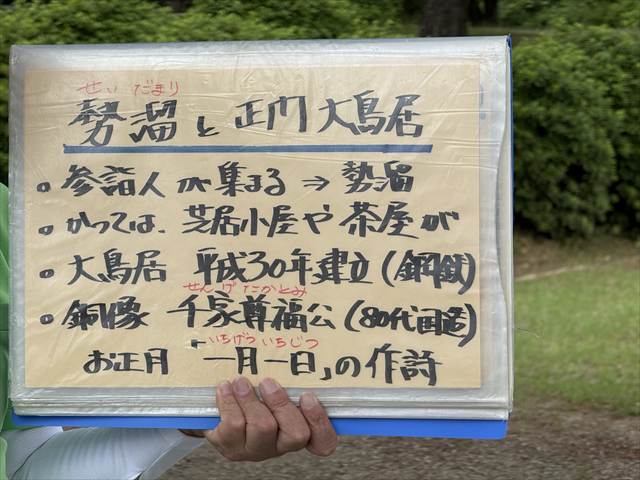 せいだまり
勢溜と正門大鳥居
。参詣人が集まる⇒勢溜
。かつては、芝居小屋や茶屋が
。大鳥居 平成30年建立(鋼鉄)
せんげたかとみ
。銅像 千家尊福公(80代国造)
いちげついちじつ
お正月「一月一日」の作詩